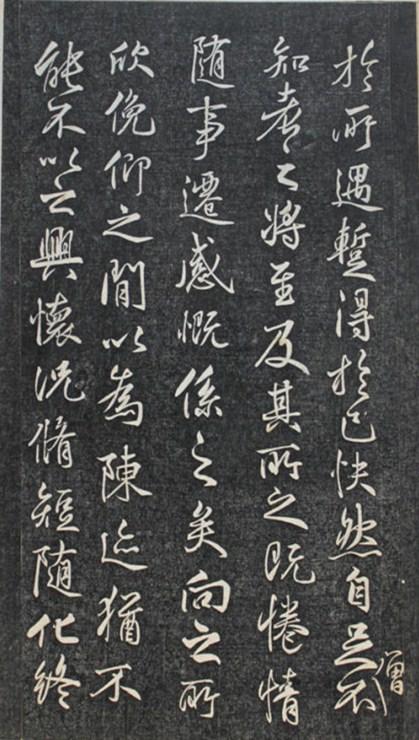 僧
於所遇蹔得於己快然自足不
知老之將至及其所之既惓情
随事遷感慨係之矣向之所
欣俛仰之間以為陳迹猶不
能不以之興懷況脩短随化終